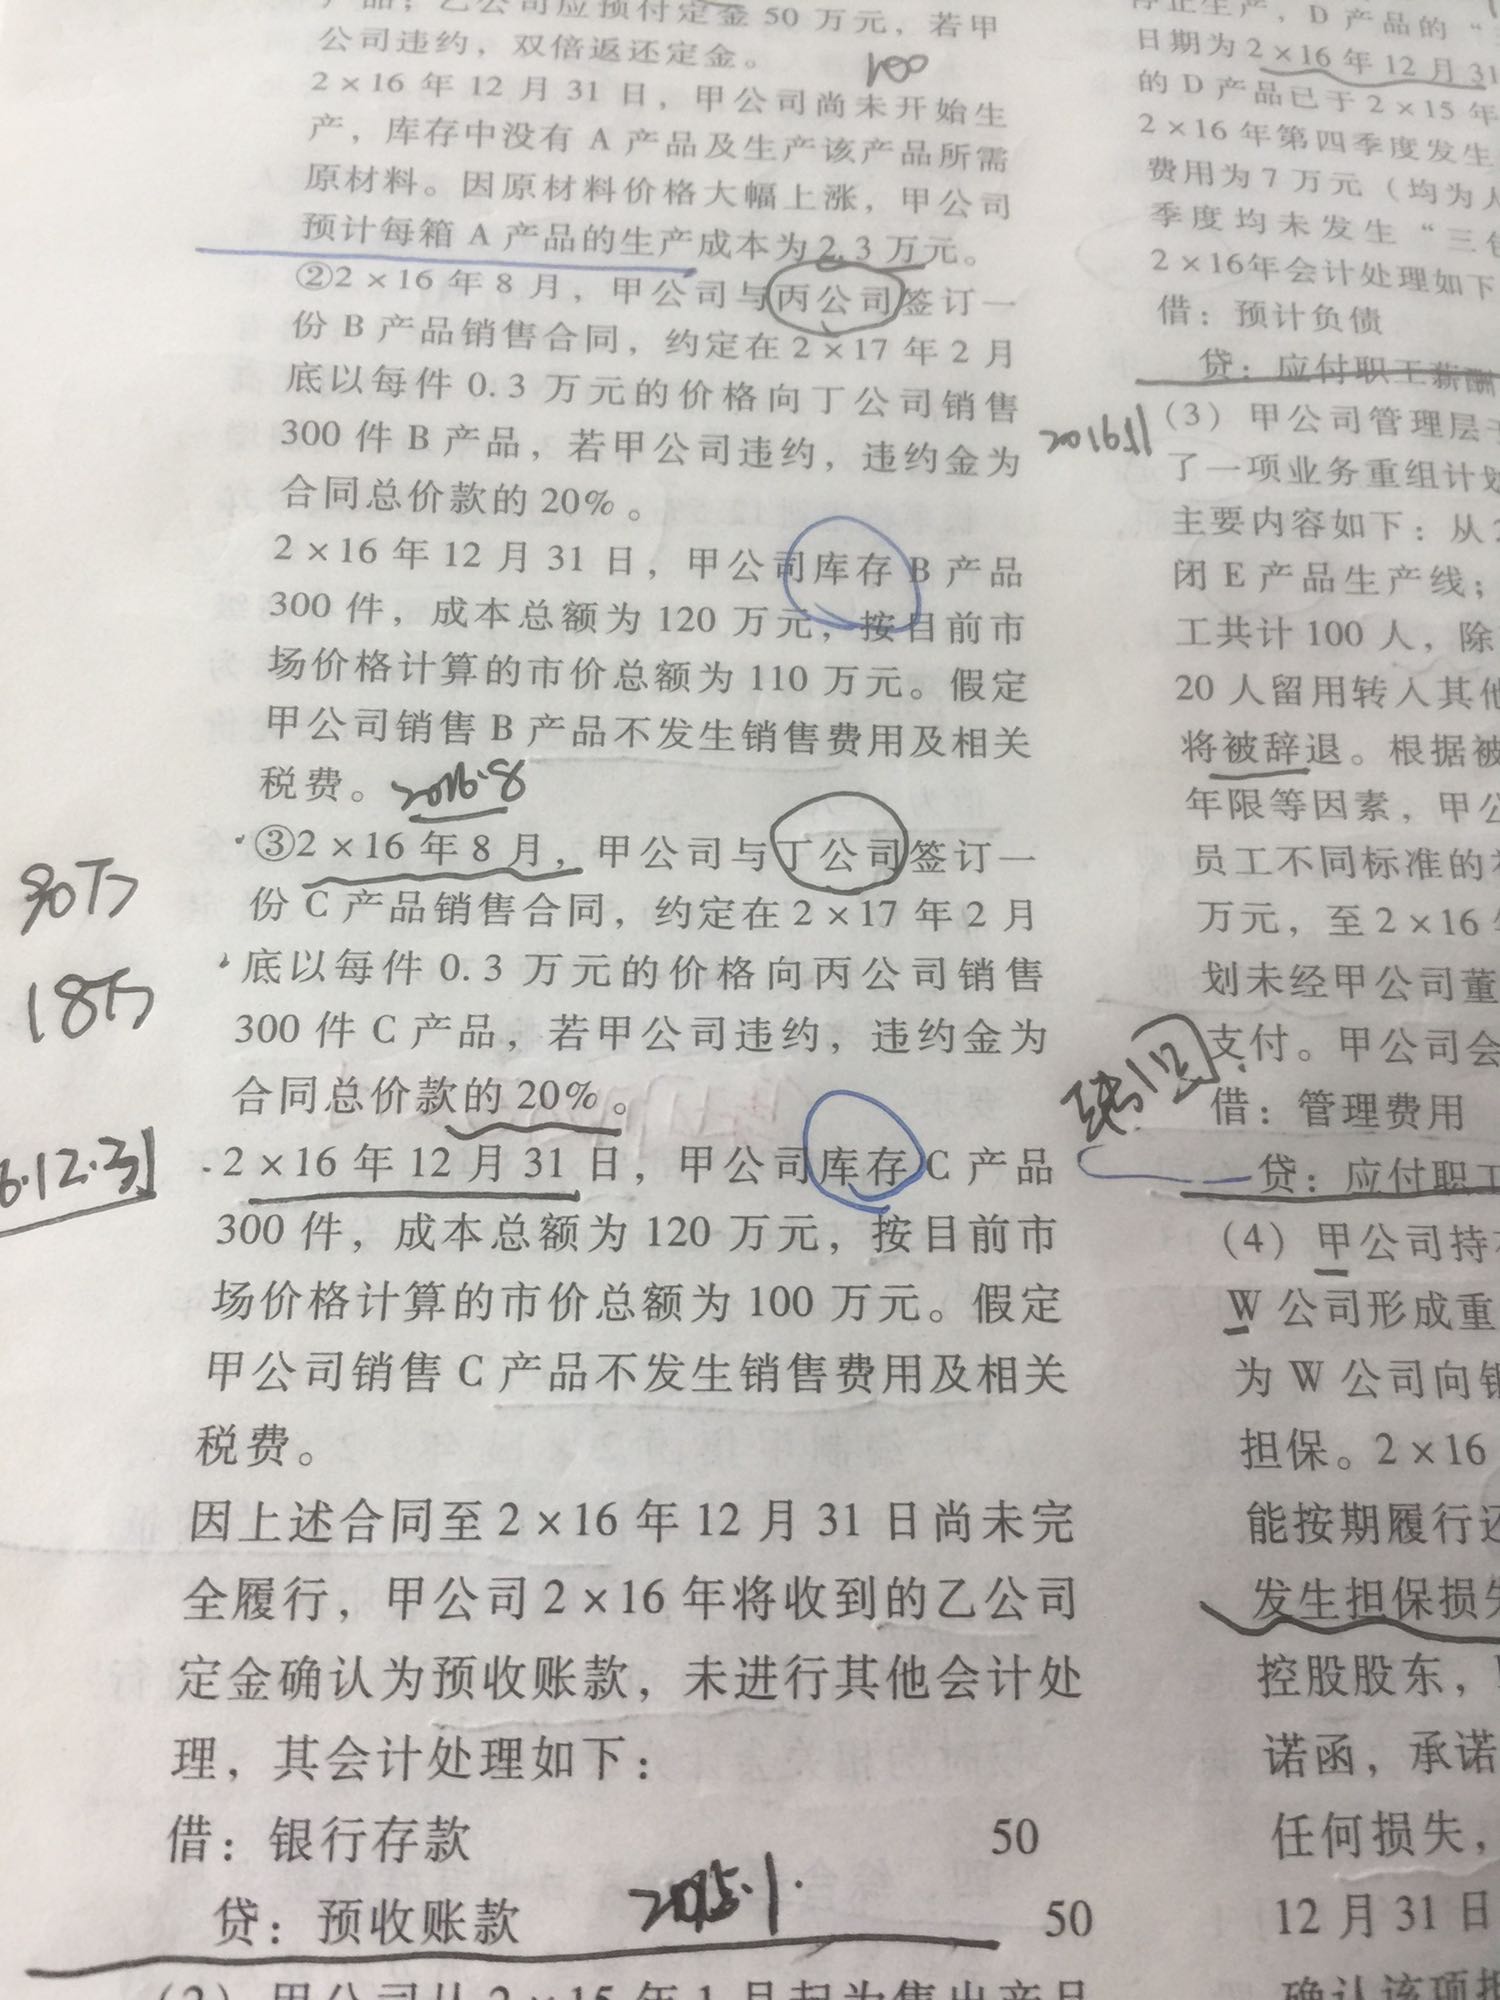 产品，乙公司应预付定金50万元，若甲
公司违约，双倍返还定金。
100
2×16年12月31日，甲公司尚未开始生
产，库存中没有A产品及生产该产品所需
原材料。因原材料价格大幅上涨，甲公司
预计每箱A产品的生产成本为2.3万元。
②2×16年8月，甲公司与丙公司签订一
份B产品销售合同，约定在2×17年2月
底以每件0.3万元的价格向丁公司销售
300件B产品，若甲公司违约，违约金为
合同总价款的20%。
2×16年12月31日，甲公司库存B产品
300件，成本总额为120万元，按目前市
场价格计算的市价总额为110万元。假定
甲公司销售B产品不发生销售费用及相关
税费。
2016.8
③2×16年8月，甲公司与丁公司签订一
份C产品销售合同，约定在2×17年2月
底以每件0.3万元的价格向丙公司销售
300件C产品，若甲公司违约，违约金为
合同总价款的20%。
90万
18万
6.12.31
2×16年12月31日，甲公司库存C产品
300件，成本总额为120万元，按目前市
场价格计算的市价总额为100万元。假定
甲公司销售C产品不发生销售费用及相关
税费。
因上述合同至2×16年12月31日尚未完
全履行，甲公司2×16年将收到的乙公司
定金确认为预收账款，未进行其他会计处
理，其会计处理如下：
借：银行存款 50
贷：预收账款 50
2015.1.
(2) 甲公司从2×15年1月起为售出产品
停止生产，D产品的“
日期为2×16年12月31
的D产品已于2×15年
2×16年第四季度发生
费用为7万元（均为人
季度均未发生“三包
2×16年会计处理如下
借：预计负债
贷：应付职工薪酬
(3) 甲公司管理层于
了一项业务重组计划
主要内容如下：从2
闭E产品生产线；
工共计100人，除
20人留用转入其他
将被辞退。根据被
年限等因素，甲公
员工不同标准的补
万元，至2×16年
划未经甲公司董
支付。甲公司会
借：管理费用
贷：应付职工
(4) 甲公司持有
W公司形成重
为W公司向银
担保。2×16
能按期履行还
发生担保损失
控股股东，
诺函，承诺
任何损失，
12月31日
确认该项担